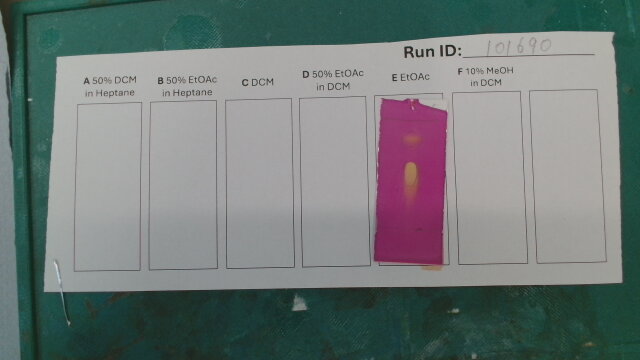 Run ID: 101690
A 50% DCM in Heptane
B 50% EtOAc in Heptane
C DCM
D 50% EtOAc in DCM
E EtOAc
F 10% MeOH in DCM